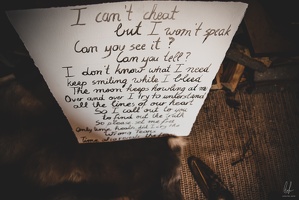 I can't cheat
but I won't speak
Can you see it?
Can you tell?
I don't know what I need
keep smiling while I bleed
The moon keeps howling at me
Over and over I try to understand
all the lines of our heart
So I call out to you
to find out the truth
So please set me free
Only time heals